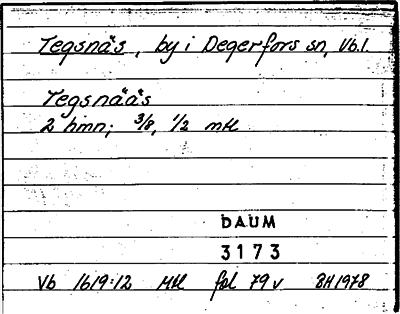 Tegsnäs, by i Degerfors sn, Vb.l.
Tegsnääs
2 hmn; 3/8, 1/2 mtl
DAUM
3173
Vb 1619:12 Mtl fol 79 v BH 1978